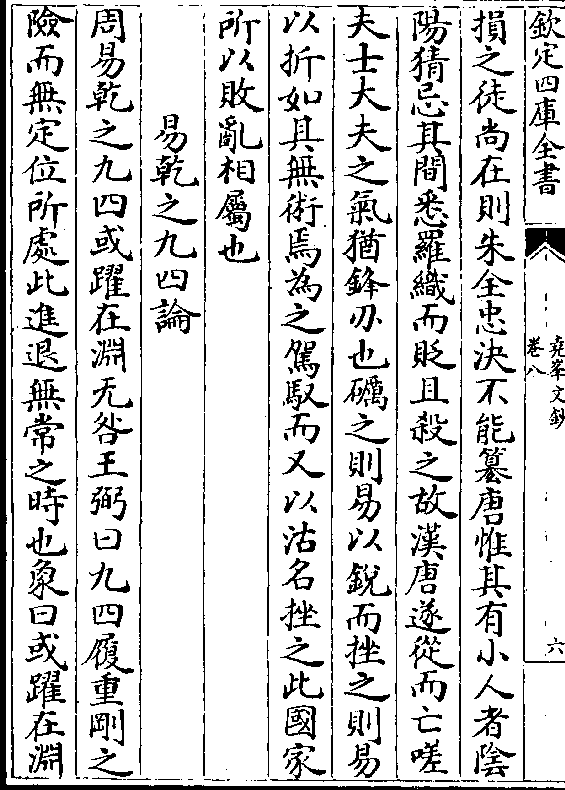 欽定四庫全書
堯峯文鈔
卷八
六
損之徒尚在則朱全忠決不能簒唐惟其有小人者陰
陽猜忌其間悉羅織而貶且殺之故漢唐遂從而亡嗟
夫士大夫之氣猶鋒刃也礪之則易以銳而挫之則易
以折如具無術焉為之駕馭而又以沽名挫之此國家
所以敗亂相屬也
易乾之九四論
周易乾之九四或躍在淵无咎王弼曰九四履重剛之
險而無定位所處此進退無常之時也象曰或躍在淵